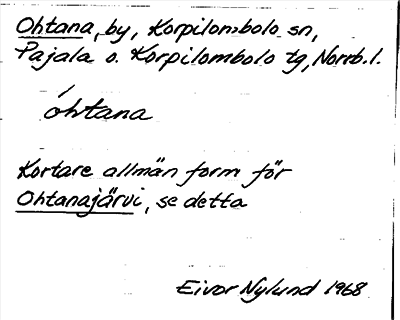 Ohtana, by, Korpilombolo sn,
Pajala o. Korpilombolo tg, Norrb. l.
óhtana
Kortare allmän form för
Ohtanajärvi, se detta
Eivor Nylund 1968